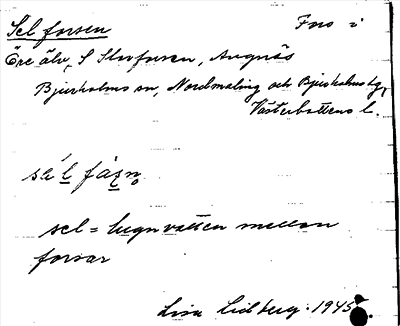 Sel forsen Fors i
Öre älv, S Storforsen, Angnäs
Bjurholms sn, Nordmaling och Bjurholms tg,
Västerbottens l.
sel = lugnvatten mellan
forsar
Lisa Lidberg. 1945